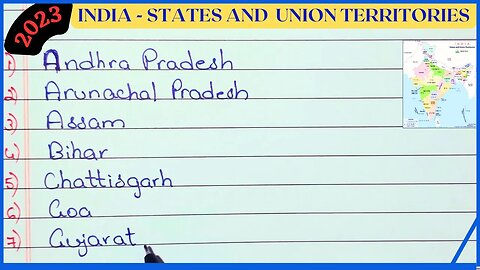 2023
INDIA - STATES AND UNION TERRITORIES
1) Andhra Pradesh
2) Arunachal Pradesh
3) Assam
4) Bihar
5) Chattisgarh
6) Goa
7) Gujarat